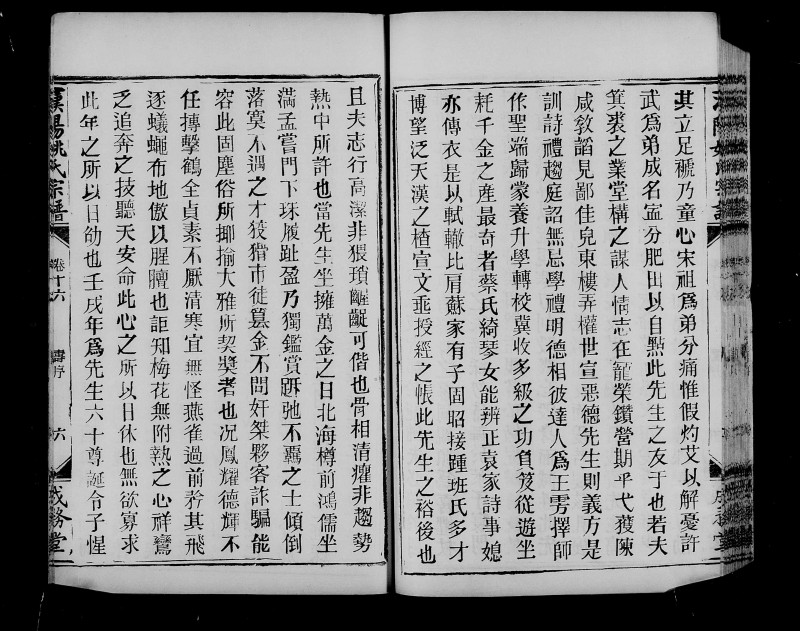 其立足褫乃童心宋祖爲弟分痛惟假灼艾以解憂許
武爲弟成名寍分肥田以自點此先生之友于也若夫
箕裘之業堂構之謀人情志在寵榮鑽營期乎弋獲陳
咸敎謟見鄙佳兒東樓弄權世宣惡德先生則義方是
訓詩禮趨庭詔無忌學禮明德相彼達人爲王雱擇師
作聖端歸蒙養升學轉校冀收多級之功負笈從遊坐
耗千金之產最奇者蔡氏綺琴女能辨正袁家詩事媳
亦傳衣是以軾轍比肩蘇家有子固昭接踵班氏多才
博望泛天漢之楂宣文垂授經之帳此先生之裕後也
且夫志行高潔非猥瑣齷齪可偕也骨相清癯非趨勢
熱中所許也當先生坐擁萬金之日北海樽前鴻儒坐
滿孟嘗門下珠履趾盈乃獨鑑賞跅弛不羈之士傾倒
落寞不遇之才狡猾市徒簋金不問奸桀夥客詐騙能
容此固塵俗所揶揄大雅所契奬者也况鳳耀德輝不
任摶擊鶴全貞素不厭清寒宜無怪燕雀過前矜其飛
逐蟻蠅布地傲以腥膻也詎知梅花無附熱之心祥鸞
乏追奔之技聽天安命此心之所以日休也無欲寡求
此年之所以日劭也壬戌年爲先生六十尊誕令子惺
漢陽姚氏宗譜
卷十六
壽序
六
成務堂